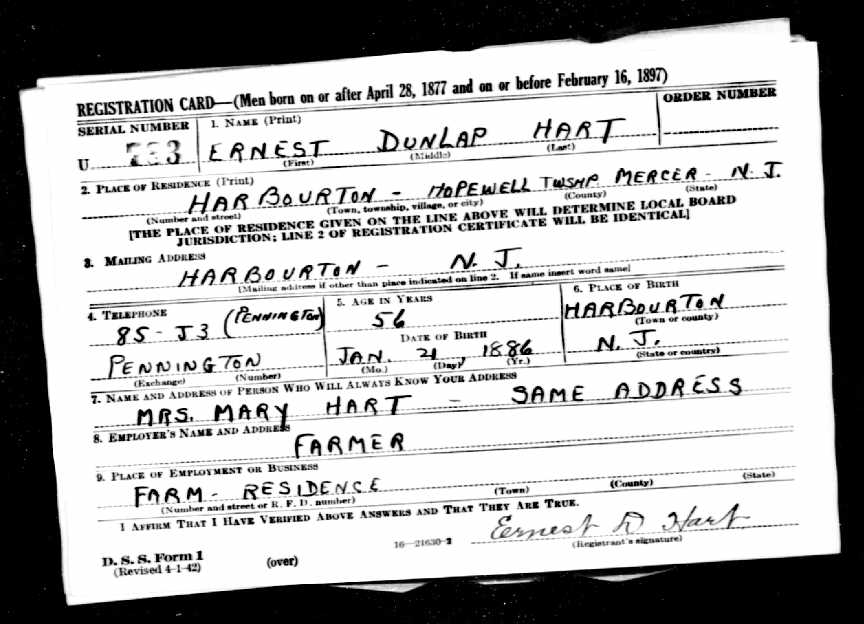 REGISTRATION CARD—(Men born on or after April 28, 1877 and on or before February 16, 1897)
SERIAL NUMBER 1. NAME (Print) ORDER NUMBER
U ERNEST DUNLAP HART
(First) (Middle) (Last)
2. PLACE OF RESIDENCE (Print)
HARBOURTON - HOPEWELL TWSHP. MERCER - N. J.
(Number and street) (Town, township, village, or city) (County) (State)
[THE PLACE OF RESIDENCE GIVEN ON THE LINE ABOVE WILL DETERMINE LOCAL BOARD
JURISDICTION; LINE 2 OF REGISTRATION CERTIFICATE WILL BE IDENTICAL]
3. MAILING ADDRESS
HARBOURTON - N. J.
[Mailing address if other than place indicated on line 2. If same insert word same]
4. TELEPHONE 5. AGE IN YEARS 6. PLACE OF BIRTH
85 - J3 (PENNINGTON) 56 HARBOURTON
DATE OF BIRTH (Town or county)
PENNINGTON JAN. 21, 1886 N. J.
(Exchange) (Number) (Mo.) (Day) (Yr.) (State or country)
7. NAME AND ADDRESS OF PERSON WHO WILL ALWAYS KNOW YOUR ADDRESS
MRS. MARY HART - SAME ADDRESS
8. EMPLOYER'S NAME AND ADDRESS
FARMER
9. PLACE OF EMPLOYMENT OR BUSINESS
FARM - RESIDENCE
(Number and street or R. F. D. number) (Town) (County) (State)
I AFFIRM THAT I HAVE VERIFIED ABOVE ANSWERS AND THAT THEY ARE TRUE.
Ernest D Hart
D. S. S. Form 1 16—21630-2 (Registrant's signature)
(Revised 4-1-42) (over)